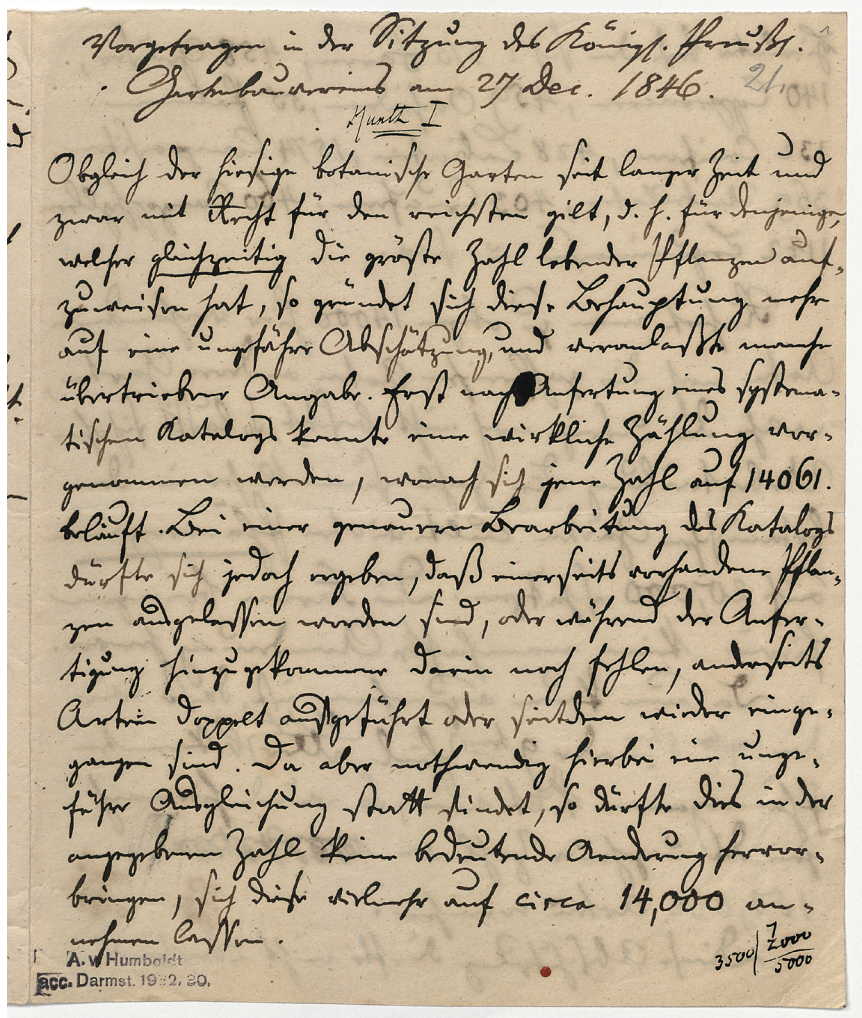 Vorgetragen in der Sitzung des Königl. Preußs.
Gartenbauvereins am 27 Dec. 1846. 21.
Kunth I
Obgleich der hiesige botanische Garten seit langer Zeit und
zwar mit Recht für den reichsten gilt, d. h. für denjenigen,
welcher gleichzeitig die größte Zahl lebender Pflanzen auf-
zuweisen hat, so gründet sich diese Behauptung mehr
auf eine ungefähre Abschätzung, und veranlaßte manche
übertriebene Angabe. Erst nach Anfertung eines systema-
tischen Katalogs konnte eine wirkliche Zählung vor-
genommen werden, wonach sich jene Zahl auf 14061.
beläuft. Bei einer genauern Bearbeitung des Katalogs
dürfte sich jedoch ergeben, daß einerseits vorhandene Pflan-
zen ausgelassen worden sind, oder während der Anfer-
tigung hinzugekommene darin noch fehlen, anderseits
Arten doppelt aufgeführt oder seitdem wieder einge-
gangen sind. Da aber nothwendig hierbei eine unge-
fähre Ausgleichung statt findet, so dürfte dies in der
angegebenen Zahl keine bedeutende Aenderung hervor-
bringen, sich diese vielmehr auf circa 14,000 an-
nehmen lassen.
A. v Humboldt
acc. Darmst. 1932. 30.
3500 | 7000
5000